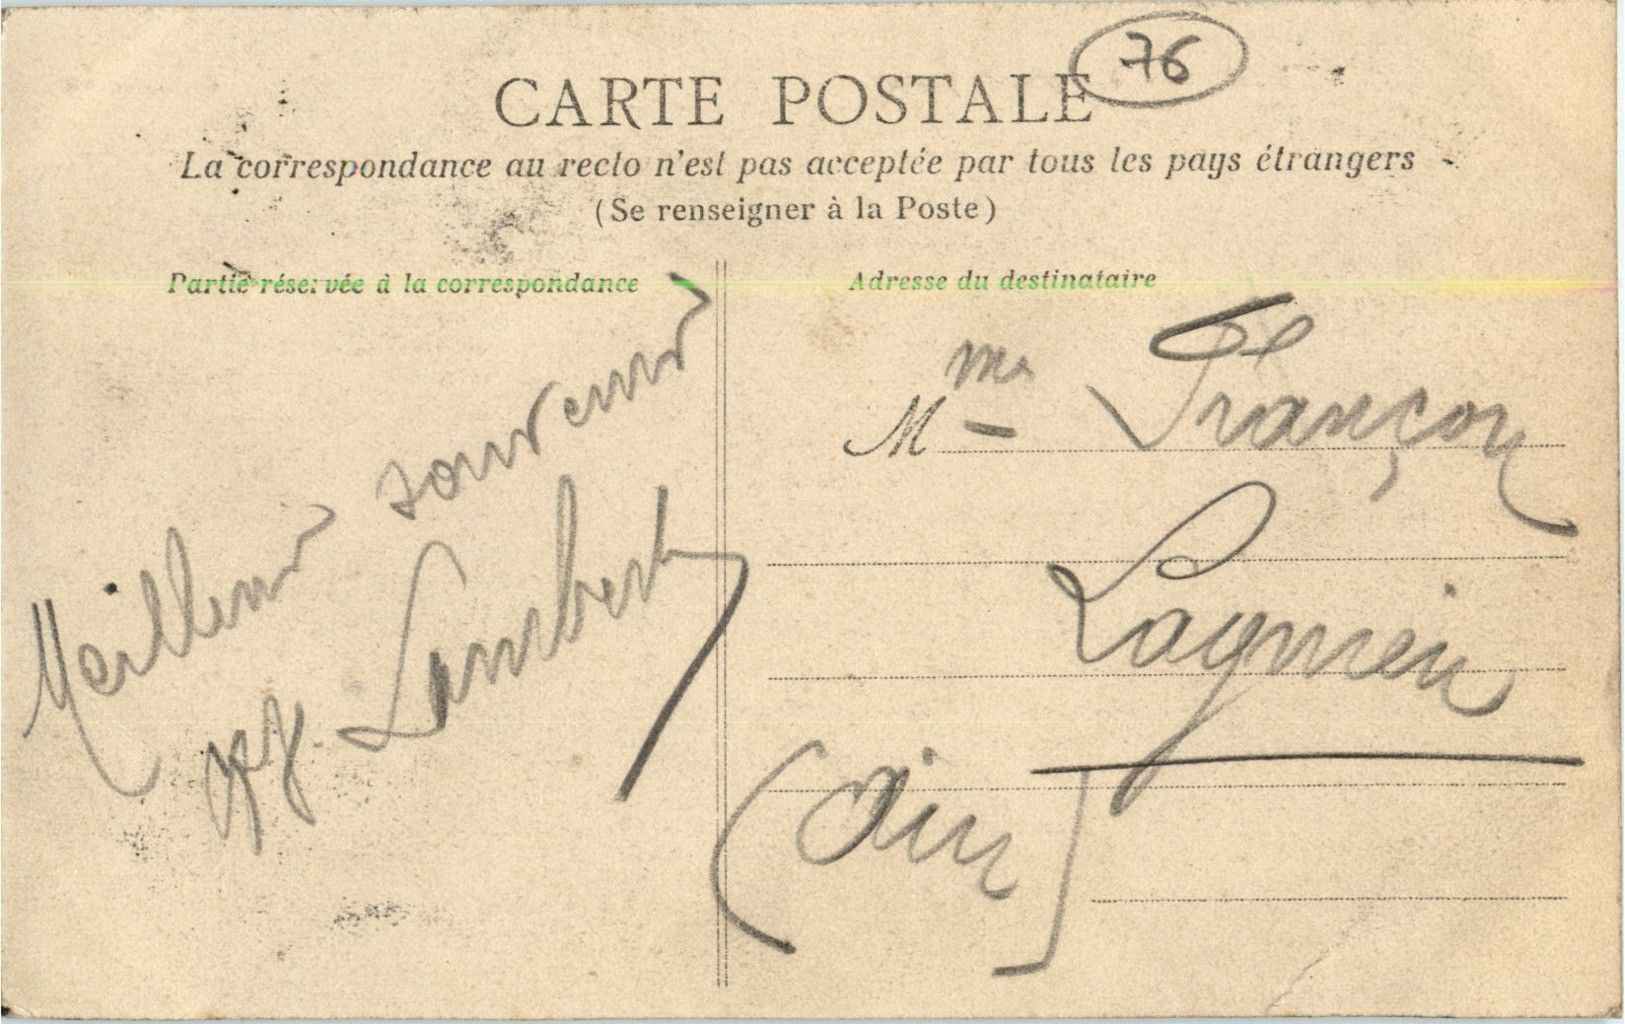 76
CARTE POSTALE
La correspondance au recto n'est pas acceptée par tous les pays étrangers
(Se renseigner à la Poste)
Partie réservée à la correspondance
Meilleur souvenir
Lambert
Adresse du destinataire
Mme Françon
Lagnieu
(Ain)